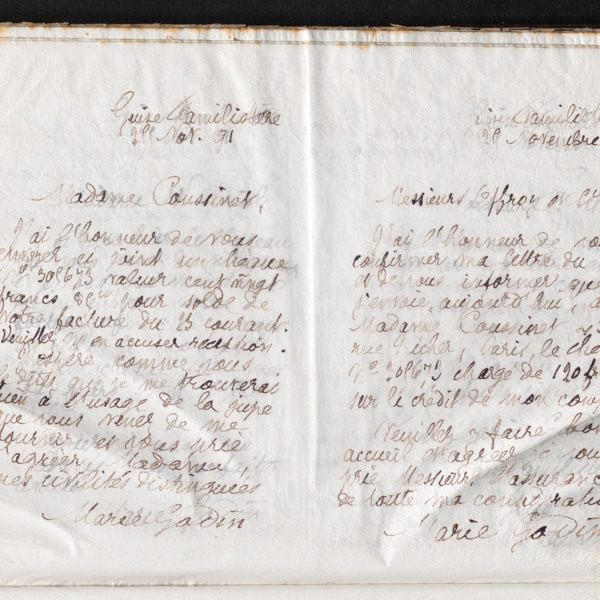 Guise Familistère
28 Nov. 91
Madame Coussinet,
J'ai l'honneur de vous
envoyer ci joint un chèque
N° 308673 valeur cent vingt
francs, pour solde de
votre facture du 23 courant.
Veuillez m'en accuser réception.
J'espère comme vous
le dites que je me trouverai
bien à l'usage de la jupe
que vous venez de me
fournir et vous prie
d'agréer, Madame,
mes civilités distinguées
Marie Godin
Guise Familistè
28 Novembre
Messieurs Offroy et Cie
J'ai l'honneur de vo
confirmer ma lettre du
et de vous informer que
j'envoie, aujourd'hui, à
Madame Coussinet
rue Richer, Paris, le chè
N° 308673 chargé de 120 f
sur le crédit de mon com
Veuillez y faire bon
accueil et agréer je vous
prie Messieurs l'assuranc
de toute ma considératio
Marie Godin